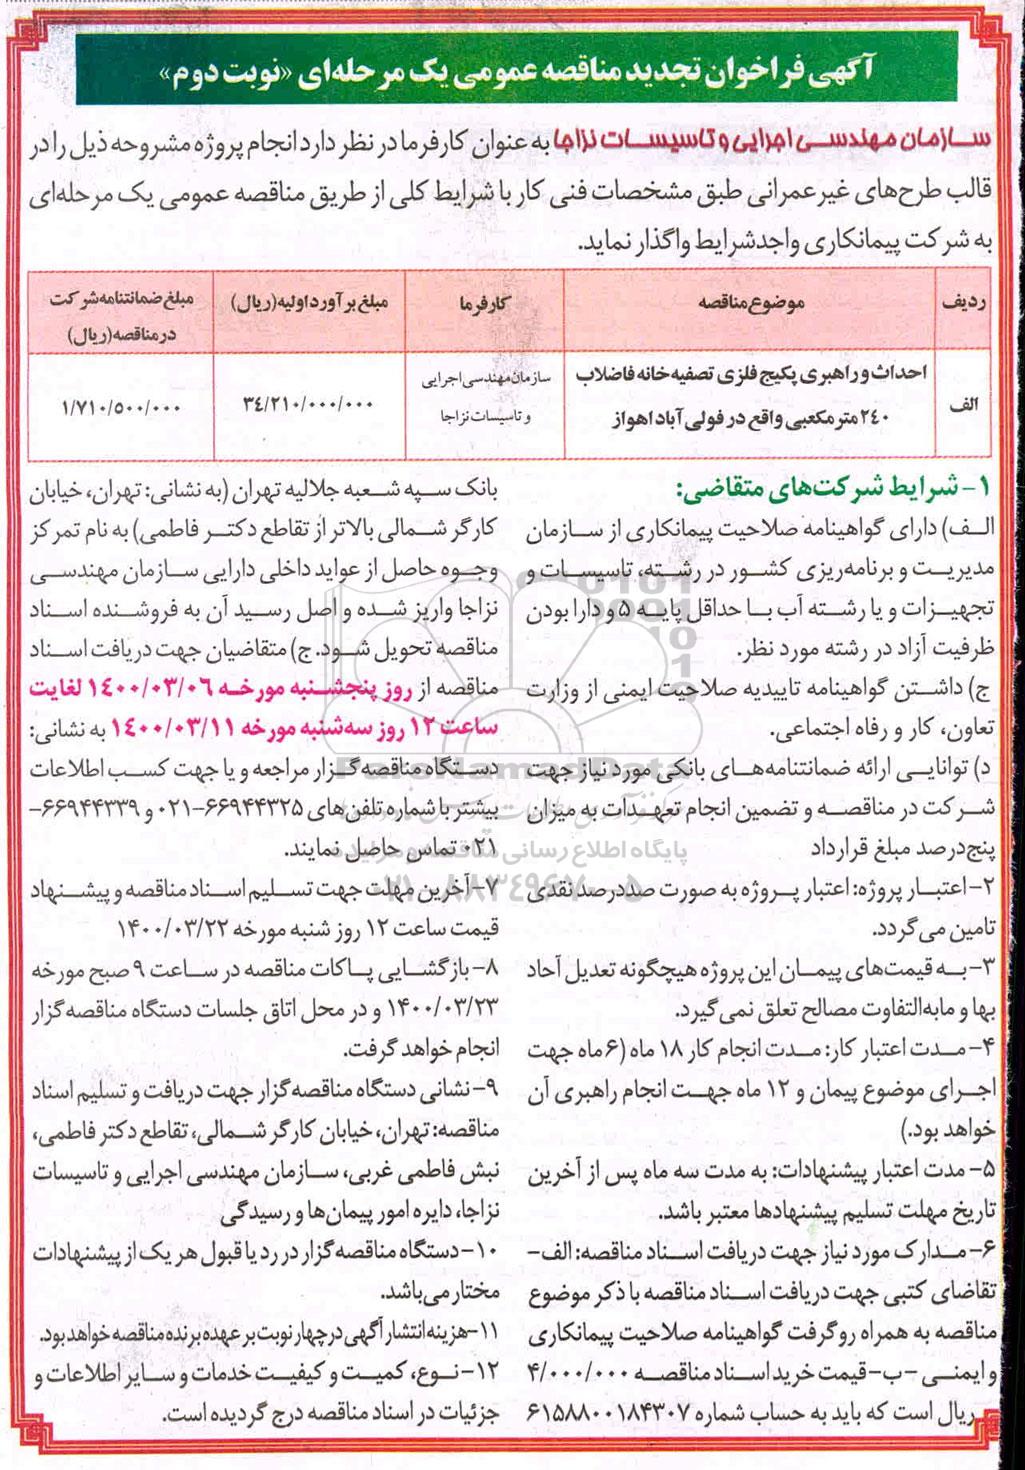 آگهی فراخوان تجدید مناقصه عمومی یک مرحله‌ای «نوبت دوم»
سازمان مهندسی اجرایی و تاسیسات نزاجا به عنوان کارفرما در نظر دارد انجام پروژه مشروحه ذیل را در
قالب طرح‌های غیرعمرانی طبق مشخصات فنی کار با شرایط کلی از طریق مناقصه عمومی یک مرحله‌ای
به شرکت پیمانکاری واجدشرایط واگذار نماید.
ردیف موضوع مناقصه کارفرما مبلغ برآورد اولیه (ریال) مبلغ ضمانتنامه شرکت
در مناقصه (ریال)
الف احداث و راهبری پکیج فلزی تصفیه خانه فاضلاب
۲۴۰ مترمکعبی واقع در فولی آباد اهواز سازمان مهندسی اجرایی
و تاسیسات نزاجا ۳۴/۲۱۰/۰۰۰/۰۰۰ ۱/۷۱۰/۵۰۰/۰۰۰
۱- شرایط شرکت‌های متقاضی:
الف) دارای گواهینامه صلاحیت پیمانکاری از سازمان
مدیریت و برنامه‌ریزی کشور در رشته، تاسیسات و
تجهیزات و یا رشته آب با حداقل پایه ۵ و دارا بودن
ظرفیت آزاد در رشته مورد نظر.
ج) داشتن گواهینامه تاییدیه صلاحیت ایمنی از وزارت
تعاون، کار و رفاه اجتماعی.
د) توانایی ارائه ضمانتنامه‌های بانکی مورد نیاز جهت
شرکت در مناقصه و تضمین انجام تعهدات به میزان
پنج‌درصد مبلغ قرارداد
۲- اعتبار پروژه: اعتبار پروژه به صورت صددرصد نقدی
تامین می‌گردد.
۳- به قیمت‌های پیمان این پروژه هیچگونه تعدیل آحاد
بها و مابه‌التفاوت مصالح تعلق نمی‌گیرد.
۴- مدت اعتبار کار: مدت انجام کار ۱۸ ماه (۶ ماه جهت
اجرای موضوع پیمان و ۱۲ ماه جهت انجام راهبری آن
خواهد بود.)
۵- مدت اعتبار پیشنهادات: به مدت سه ماه پس از آخرین
تاریخ مهلت تسلیم پیشنهادها معتبر باشد.
۶- مدارک مورد نیاز جهت دریافت اسناد مناقصه: الف-
تقاضای کتبی جهت دریافت اسناد مناقصه با ذکر موضوع
مناقصه به همراه روگرفت گواهینامه صلاحیت پیمانکاری
و ایمنی - ب- قیمت خرید اسناد مناقصه ۴/۰۰۰/۰۰۰
ریال است که باید به حساب شماره ۶۱۵۸۸۰۰۱۸۴۳۰۷
بانک سپه شعبه جلالیه تهران (به نشانی: تهران، خیابان
کارگر شمالی بالاتر از تقاطع دکتر فاطمی) به نام تمرکز
وجوه حاصل از عواید داخلی دارایی سازمان مهندسی
نزاجا واریز شده و اصل رسید آن به فروشنده اسناد
مناقصه تحویل شود. ج) متقاضیان جهت دریافت اسناد
مناقصه از روز پنجشنبه مورخه ۱۴۰۰/۰۳/۰۶ لغایت
ساعت ۱۲ روز سه‌شنبه مورخه ۱۴۰۰/۰۳/۱۱ به نشانی:
دستگاه مناقصه‌گزار مراجعه و یا جهت کسب اطلاعات
بیشتر با شماره تلفن‌های ۶۶۹۴۴۳۲۵-۰۲۱ و ۶۶۹۴۴۳۳۹-
۰۲۱ تماس حاصل نمایند.
۷- آخرین مهلت جهت تسلیم اسناد مناقصه و پیشنهاد
قیمت ساعت ۱۲ روز شنبه مورخه ۱۴۰۰/۰۳/۲۲
۸- بازگشایی پاکات مناقصه در ساعت ۹ صبح مورخه
۱۴۰۰/۰۳/۲۳ و در محل اتاق جلسات دستگاه مناقصه‌گزار
انجام خواهد گرفت.
۹- نشانی دستگاه مناقصه‌گزار جهت دریافت و تسلیم اسناد
مناقصه: تهران، خیابان کارگر شمالی، تقاطع دکتر فاطمی،
نبش فاطمی غربی، سازمان مهندسی اجرایی و تاسیسات
نزاجا، دایره امور پیمان‌ها و رسیدگی
۱۰- دستگاه مناقصه‌گزار در رد یا قبول هر یک از پیشنهادات
مختار می‌باشد.
۱۱- هزینه انتشار آگهی در چهار نوبت بر عهده برنده مناقصه خواهد بود.
۱۲- نوع، کمیت و کیفیت خدمات و سایر اطلاعات و
جزئیات در اسناد مناقصه درج گردیده است.
ParsNamadData
پایگاه اطلاع رسانی مناقصه و مزایده